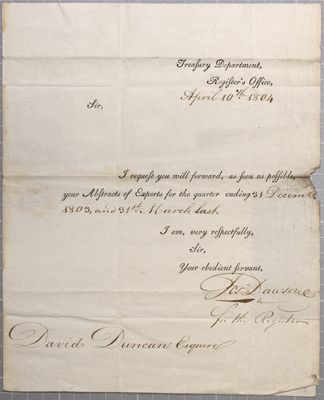 Treasury Department,
Register's Office,
April 10th 1804
Sir,
I request you will forward, as soon as possible,
your Abstracts of Exports for the quarter ending 31 Decem
1803, and 31st March last.
I am, very respectfully,
Sir,
Your obedient servant,
Jos Dawson
for the Register
David Duncan Esquire